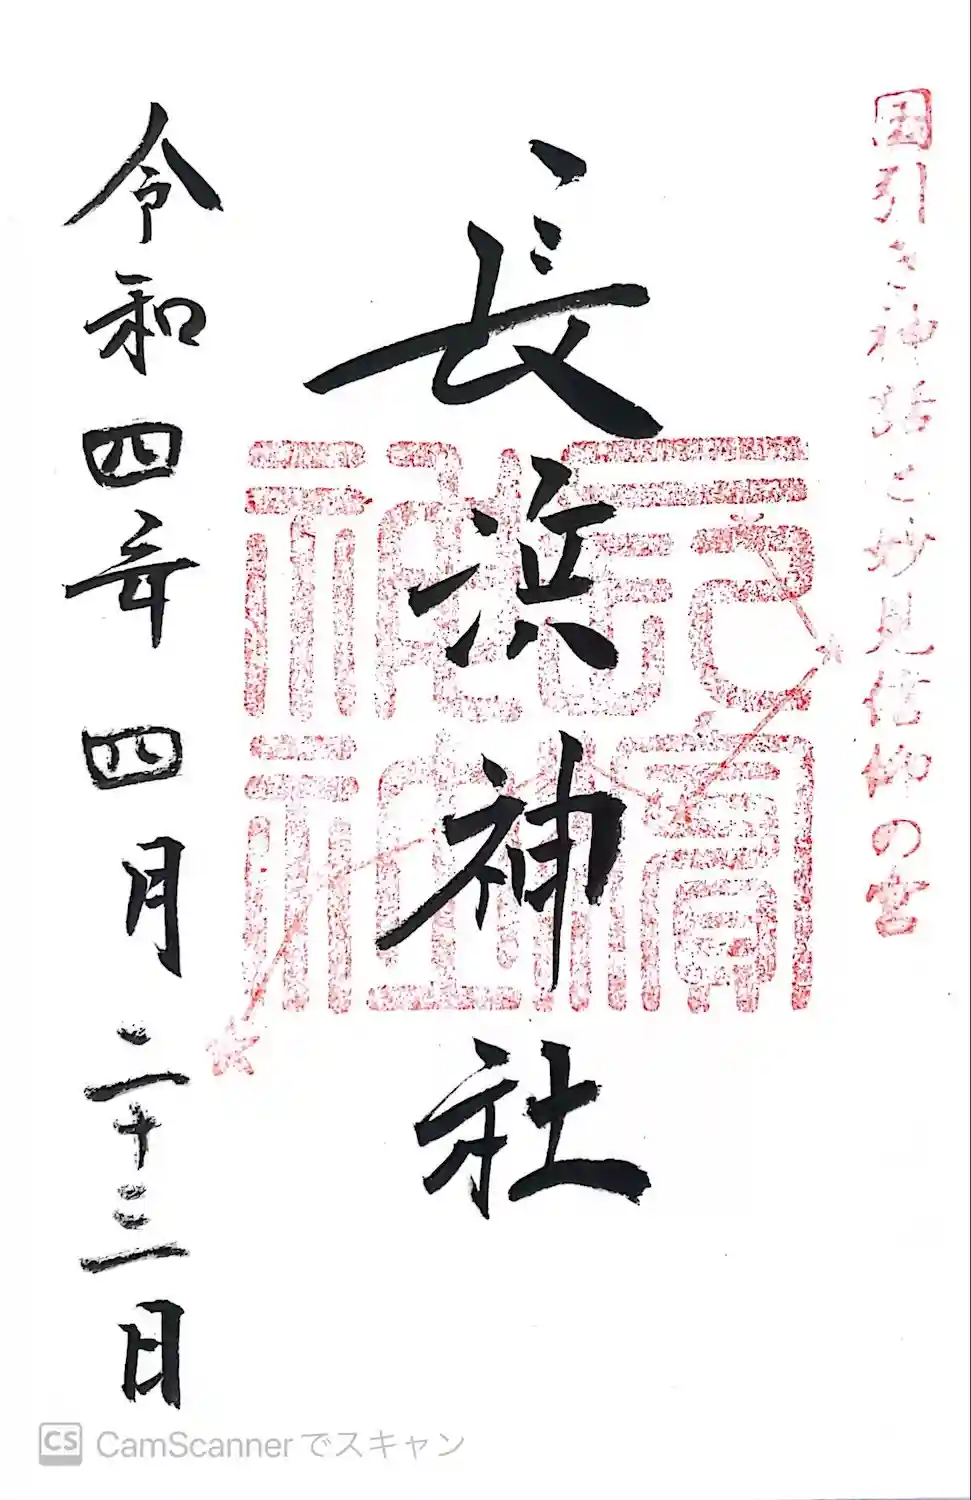 国引き神話と妙見信仰の宮
長浜神社
令和四年四月二十三日
CS CamScannerでスキャン